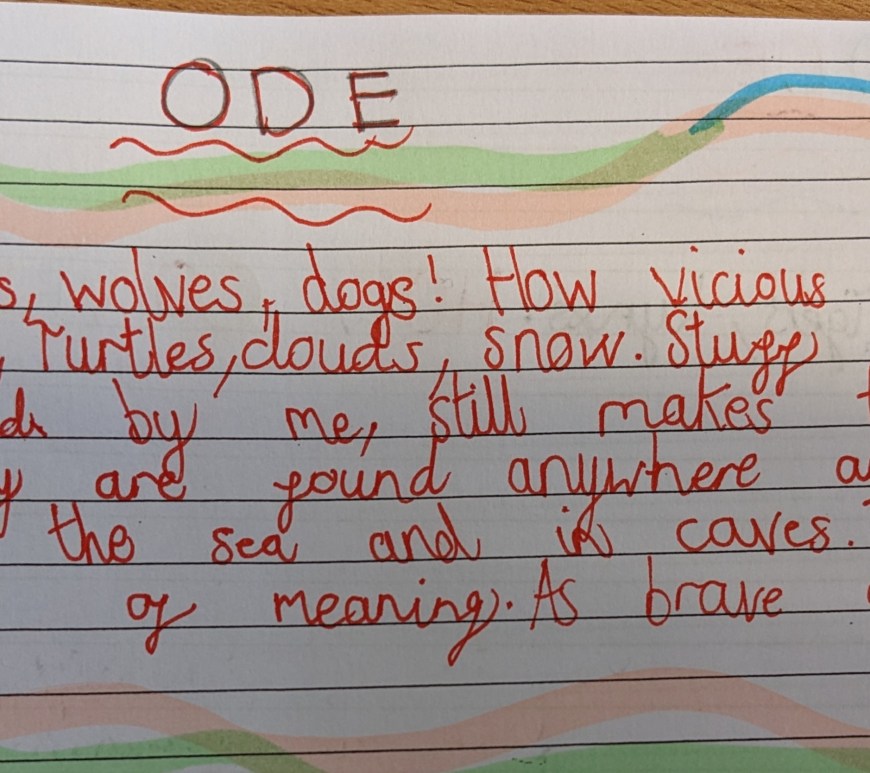 ODE
s, wolves, dogs! How vicious
, Turtles, clouds, snow. Stuff
by me, still makes
y are found anywhere a
the sea and in caves.
of meaning. As brave